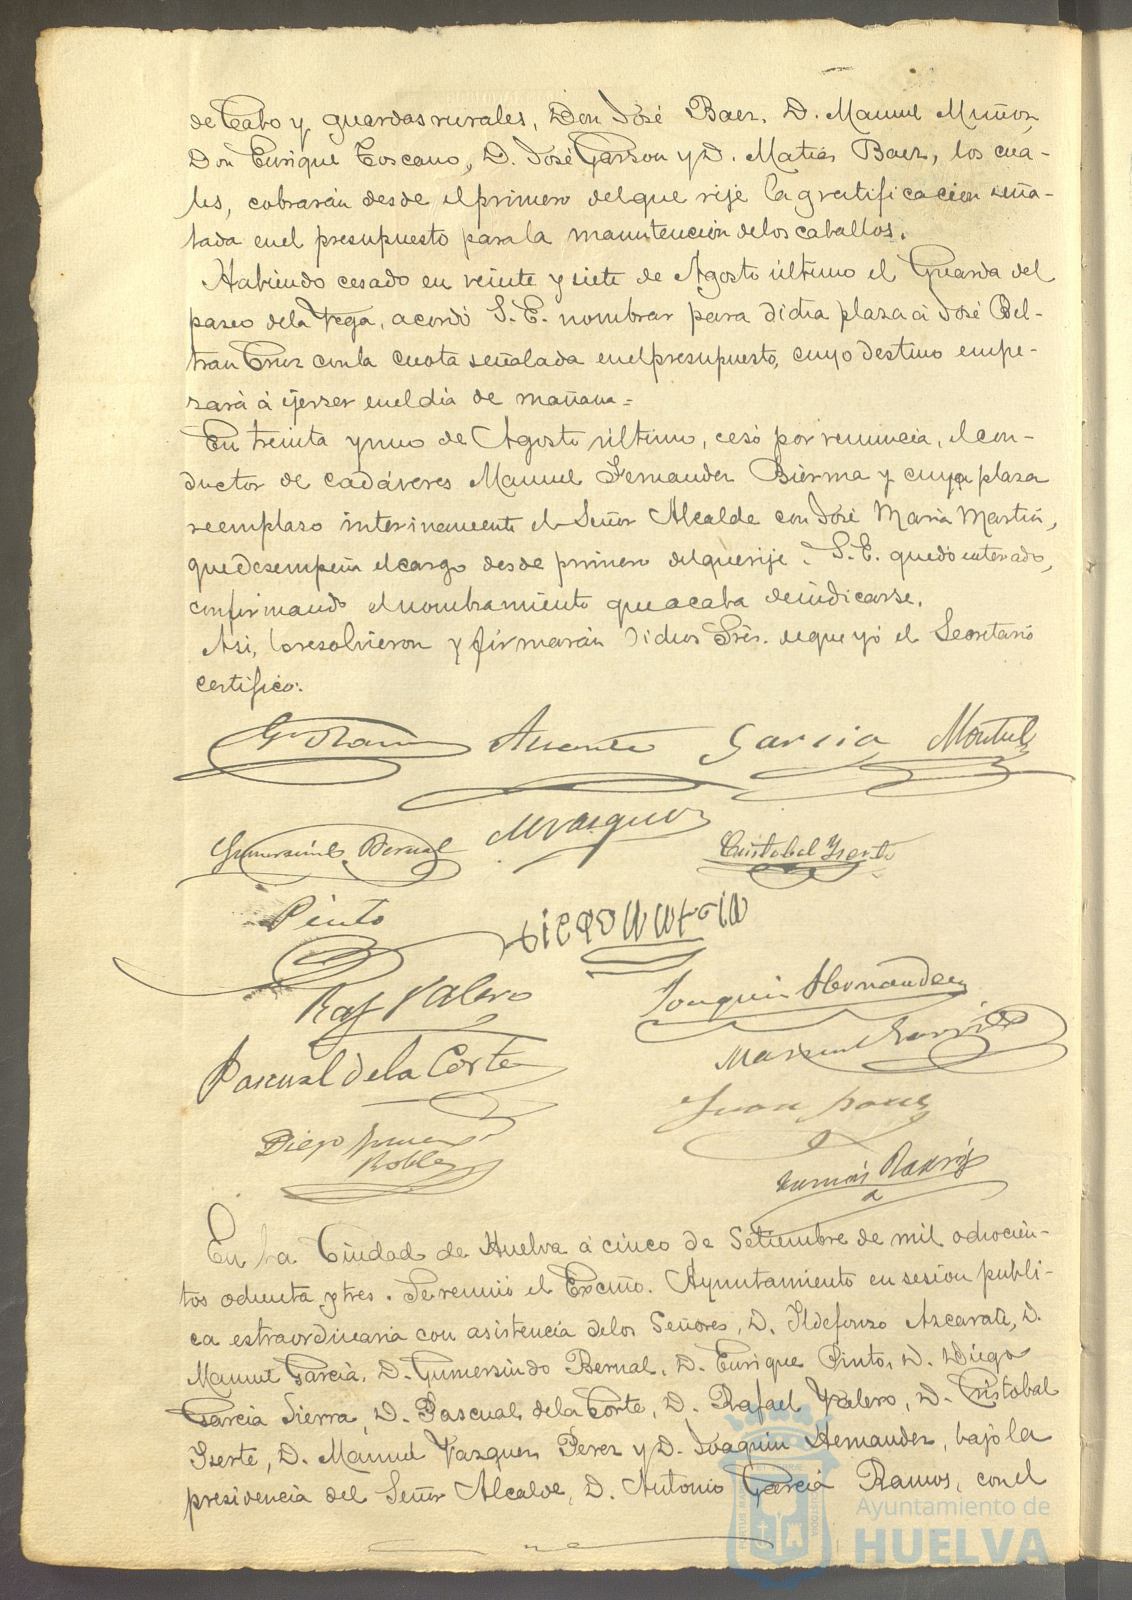 de Cabo y guardas rurales, Don José Baez, D. Manuel Muñoz,
Don Enrique Toscano, D. José Garzon y D. Matias Baez, los cua-
les, cobrarán desde el primero del que rije la gratificacion seña-
lada en el presupuesto para la manutención de los caballos.
Habiendo cesado en veinte y siete de Agosto último el Guarda del
paseo de la Vega, acordó S. E. nombrar para dicha plaza á José Bel-
tran Cruz con la cuota señalada en el presupuesto, cuyo destino empe-
zará á ejerser en el dia de mañana=
En treinta y uno de Agosto último, cesó por renuncia, el con-
ductor de cadáveres Manuel Fernandez Bierma y cuya plaza
reemplazo interinamente el Señor Alcalde con José Maria Martin,
que desempeña el cargo desde primero del que rije. S. E. quedó enterado,
confirmando el nombramiento que acaba de indicarse.
Asi, lo resolvieron y firmarán dichos Sres. de que yó el Secretario
certifico:
Garcia Montiel
Gumersindo Bernal MVazquez Cristobal Yserte
Pinto
Raf Valero Joaquin Hernandez
Pascual de la Corte Manuel Garcia
Diego
Robles
En la Ciudad de Huelva á cinco de Setiembre de mil ochocien-
tos ochenta y tres. Se reunió el Excmo. Ayuntamiento en sesion publi-
ca estraordinaria con asistencia de los Señores, D. Ildefonzo Azcarate, D.
Manuel Garcia, D. Gumersindo Bernal, D. Enrique Pinto, D. Diego
Garcia Sierra, D. Pascual de la Corte, D. Rafael Valero, D. Cristobal
Yserte, D. Manuel Vazquez Perez y D. Joaquin Hernandez, bajo la
presidencia del Señor Alcalde, D. Antonio Garcia Ramos, con el
Ayuntamiento de
HUELVA